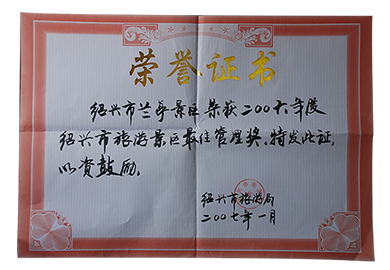 荣誉证书
绍兴市兰亭景区荣获二00六年度
绍兴市旅游景区最佳管理奖,特发此证,
以资鼓励。
绍兴市旅游局
二00七年一月